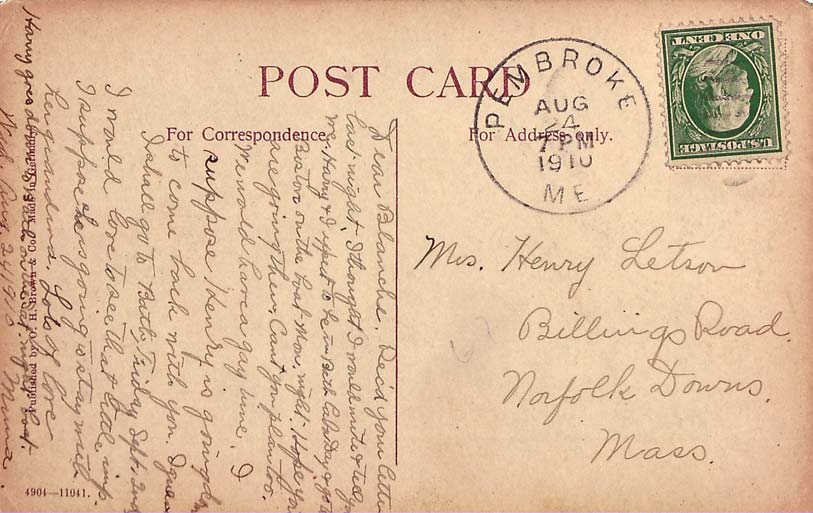 POST CARD
For Correspondence.
For Address only.
PEMBROKE
AUG
24
7 PM
1910
ME
U.S. POSTAGE
ONE CENT
Mrs. Henry Letson
Billings Road.
Norfolk Downs.
Mass.
Dear Blanche. Rec'd your letter
last night. I thought I would write & tell you
we, Harry & I expect to be in Bath Saturday & go to
Boston on the boat Mon. night. Hope you
are going then. Can't you plan too.
We would have a gay time. I
suppose Henry is going
to come back with you. I guess
I shall go to Bath, Friday, Sept. 2nd
I would love to see that little imp.
I suppose he is going to stay with
her grandma. Lots of love
Harry goes down Sat. night boat.
Wed. Aug. 24 1910 Mima.
Published by O. H. Brown & Co. Made in Germany
4904—11041.